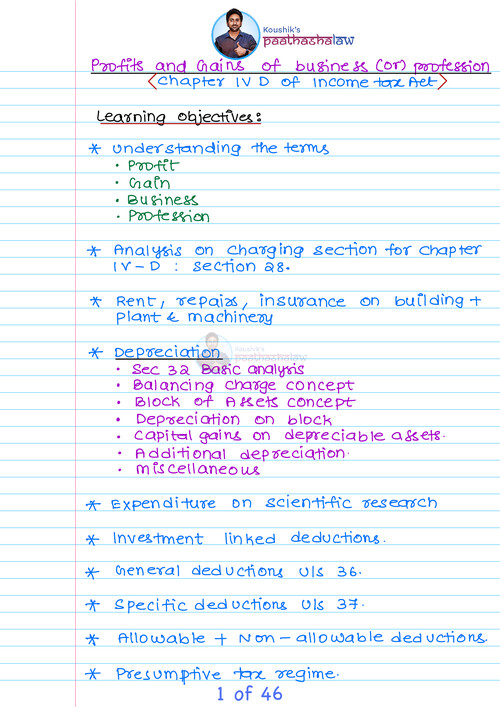 Koushik's
paathashalaw
Profits and Gains of business (or) profession
<Chapter IV D of Income tax Act>
Learning objectives:
* understanding the terms
• Profit
• Gain
• Business
• Profession
* Analysis on charging section for chapter
IV-D : section 28.
* Rent, repairs, insurance on building +
plant & machinery
Koushik's
paathashalaw
* Depreciation
• Sec 32 Basic analysis
• Balancing charge concept
• Block of Assets concept
• Depreciation on block
• Capital gains on depreciable assets.
• Additional depreciation.
• miscellaneous
* Expenditure on scientific research
* Investment linked deductions.
* General deductions U/s 36.
* Specific deductions U/s 37.
* Allowable + Non-allowable deductions.
* Presumptive tax regime.
1 of 46